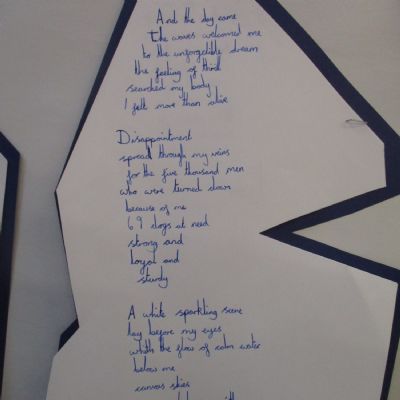 And the day came
the waves welcomed me
to the unforgettable dream
the feeling of thrill
searched my body
I felt more than alive
Disappointment
spread through my veins
for the five thousand men
who were turned down
because of me
69 dogs at need
strong and
loyal and
sturdy
A white sparkling scene
lay before my eyes
whith the flow of calm water
below me
canvas skies